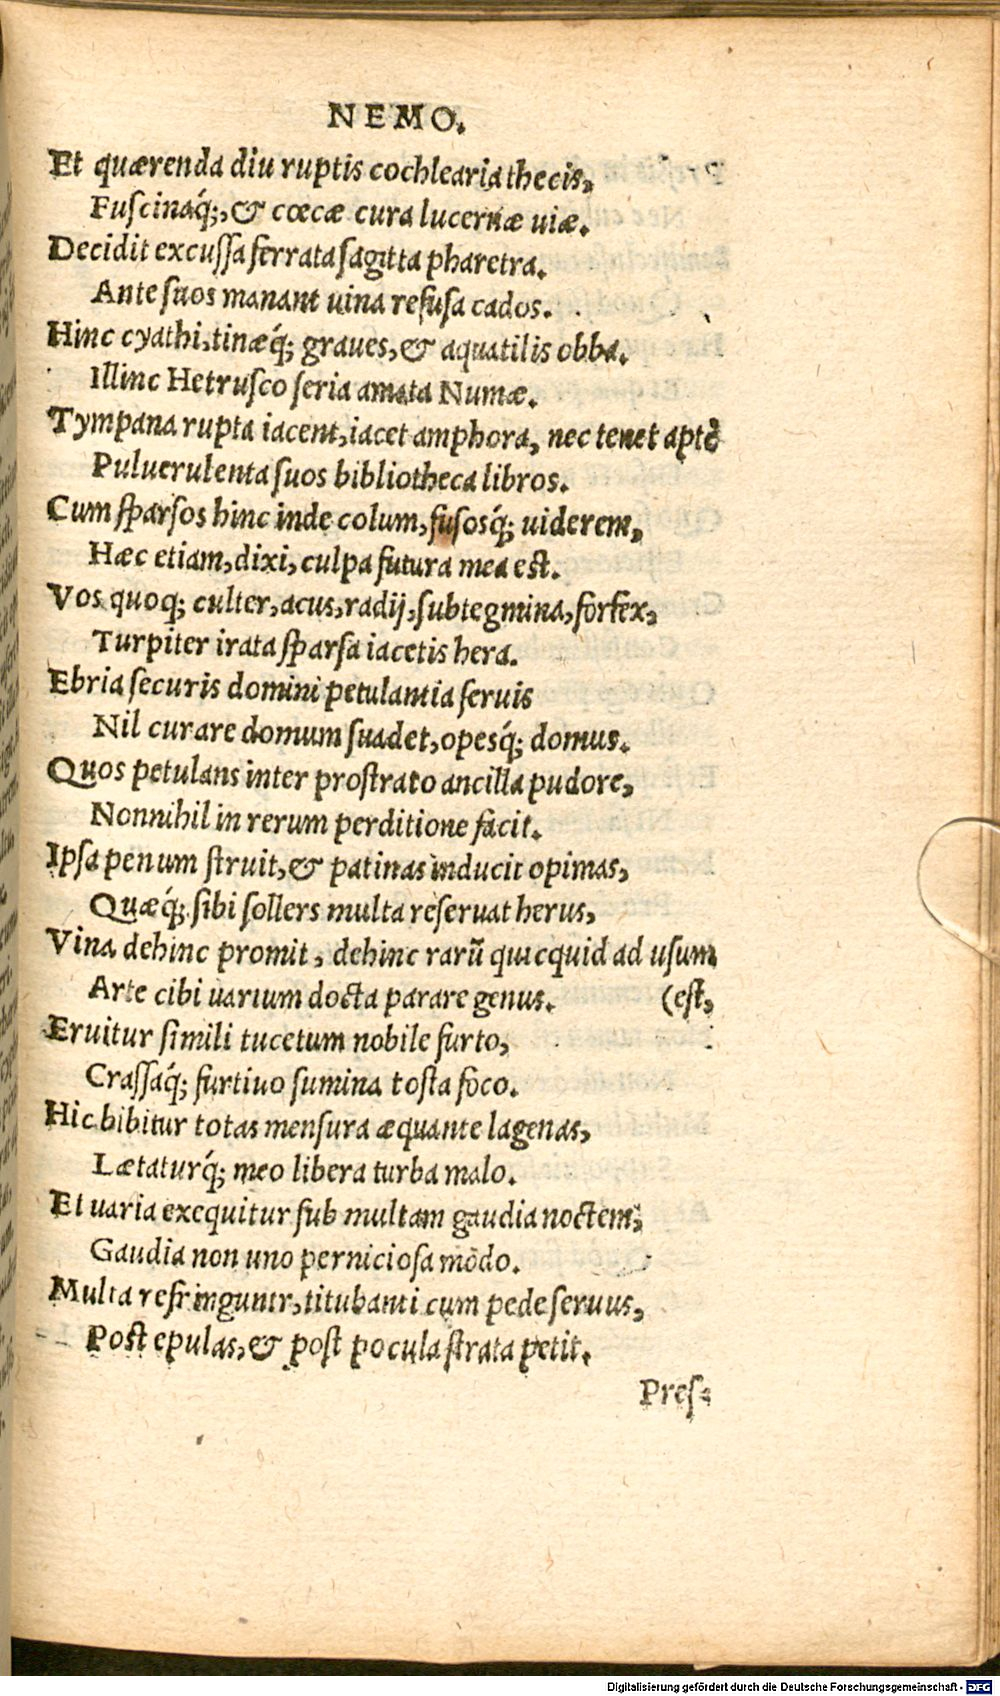 NEMO.
Et quærenda diu ruptis cochlearia thecis,
Fuscinaq́;, & cœcæ cura lucernæ uiæ.
Decidit excussa ferrata sagitta pharetra.
Ante suos manant uina refusa cados.
Hinc cyathi, tinæq́; graues, & aquatilis obba.
Illinc Hetrusco seria amata Numæ.
Tympana rupta iacent, iacet amphora, nec tenet aptè
Puluerulenta suos bibliotheca libros.
Cum sparsos hinc inde colum, fusosq́; uiderem,
Hæc etiam, dixi, culpa futura mea est.
Vos quoq; culter, acus, radij, subtegmina, forfex,
Turpiter irata sparsa iacetis hera.
Ebria securis domini petulantia seruis
Nil curare domum suadet, opesq́; domus.
Quos petulans inter prostrato ancilla pudore,
Nonnihil in rerum perditione facit.
Ipsa penum struit, & patinas inducit opimas,
Quæq́; sibi sollers multa reseruat herus,
Vina dehinc promit, dehinc rarū quicquid ad usum
Arte cibi uarium docta parare genus. (est,
Eruitur simili tucetum nobile furto,
Crassaq́; furtiuo sumina tosta foco.
Hic bibitur totas mensura æquante lagenas,
Lætaturq́; meo libera turba malo.
Et uaria exequitur sub multam gaudia noctem,
Gaudia non uno perniciosa modo.
Multa refringuntr, titubanti cum pede seruus,
Post epulas, & post pocula strata petit.
Pres-
Digitalisierung gefördert durch die Deutsche Forschungsgemeinschaft - DFG